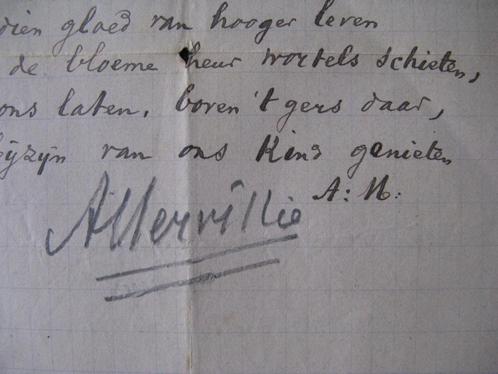 dien gloed van hooger leven
de bloeme heur wortels schieten,
ons laten, boven 't gers daar,
bijzijn van ons Kind genieten
A: M:
AMervillie